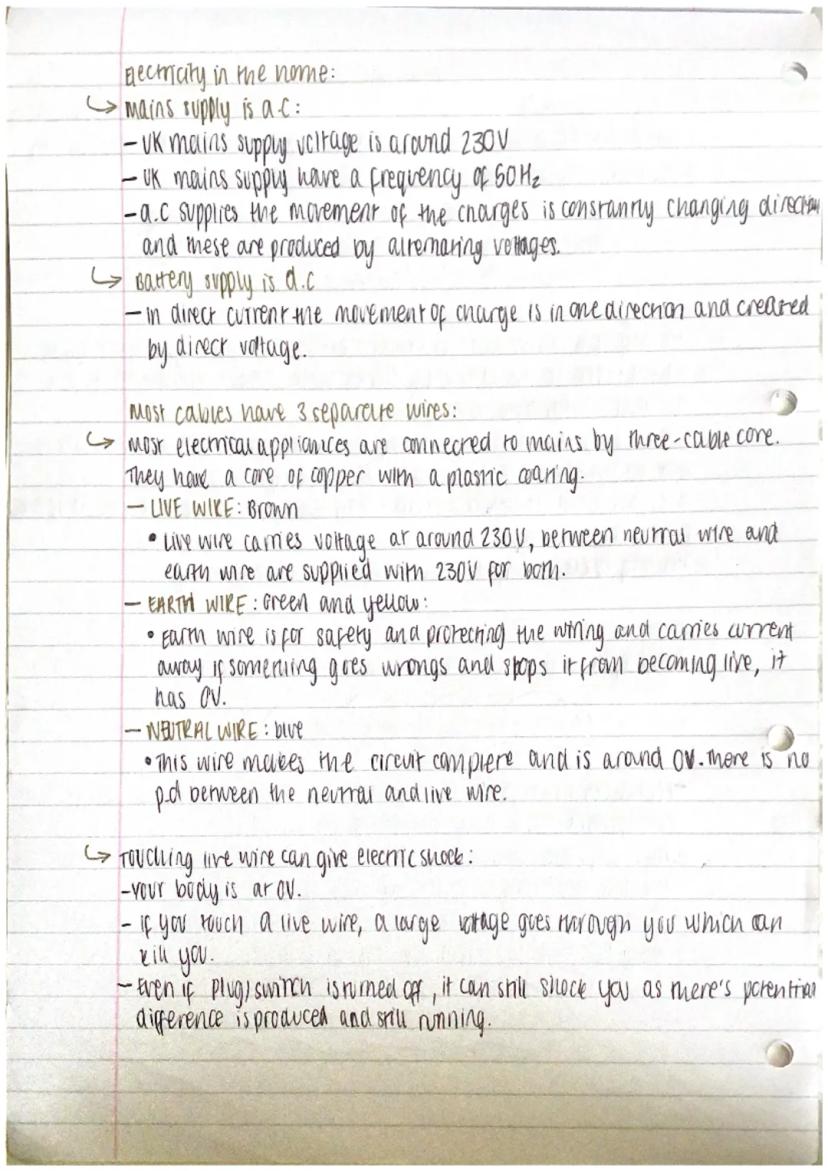 Electricity in the home:
↳ Mains supply is a.c:
- UK mains supply voltage is around 230V
- UK mains supply have a frequency of 50Hz
- a.c supplies the movement of the charges is constantly changing direction
and these are produced by alternating voltages.
↳ Battery supply is d.c
- In direct current the movement of charge is in one direction and created
by direct voltage.
Most cables have 3 separate wires:
↳ Most electrical appliances are connected to mains by three-cable core.
They have a core of copper with a plastic coating.
- LIVE WIRE: Brown
• Live wire carries voltage at around 230V, between neutral wire and
earth wire are supplied with 230V for both.
- EARTH WIRE: Green and yellow:
• Earth wire is for safety and protecting the wiring and carries current
away if something goes wrongs and stops it from becoming live, it
has 0V.
- NEUTRAL WIRE: blue
• This wire makes the circuit complete and is around 0V. There is no
p.d between the neutral and live wire.
↳ Touching live wire can give electric shock:
- Your body is at 0V.
- if you touch a live wire, a large voltage goes through you which can
kill you.
- Even if plug/switch is turned off, it can still shock you as there's potential
difference is produced and still running.